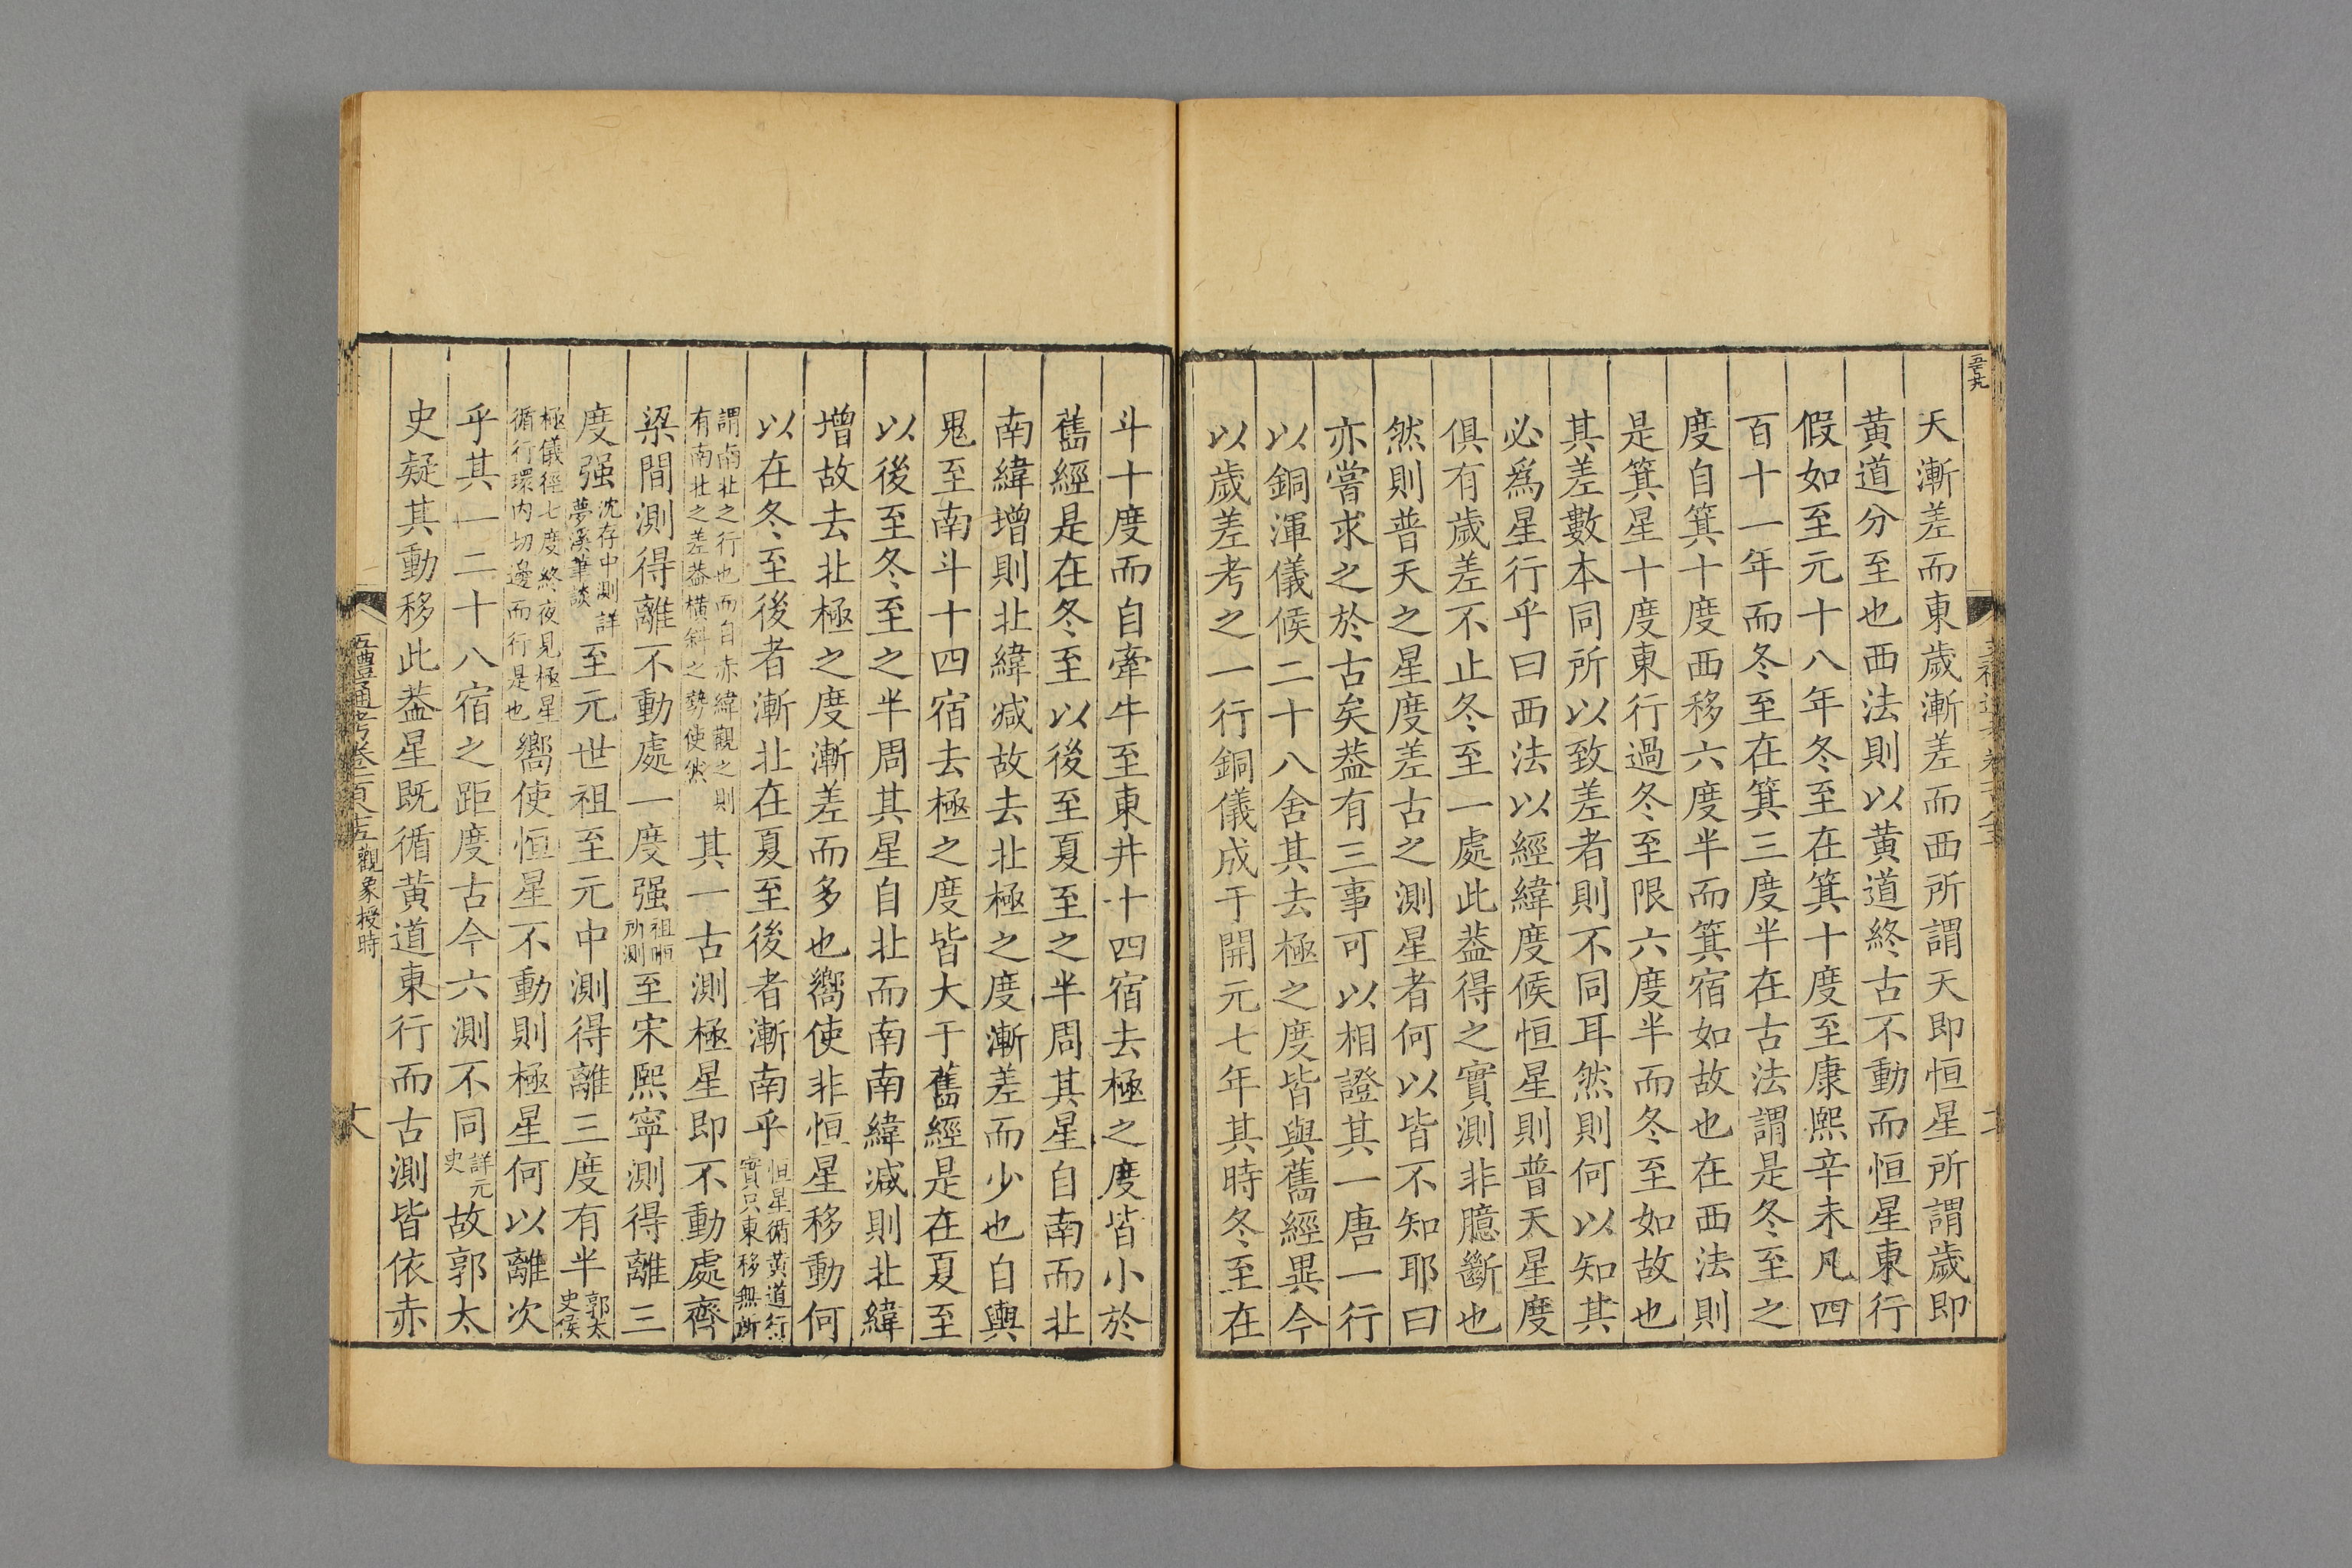 天漸差而東歲漸差而西所謂天即恒星所謂歲即
黄道分至也西法則以黄道終古不動而恒星東行
假如至元十八年冬至在箕十度至康熙辛未凡四
百十一年而冬至在箕三度半在古法謂是冬至之
度自箕十度西移六度半而箕宿如故也在西法則
是箕星十度東行過冬至限六度半而冬至如故也
其差數本同所以致差者則不同耳然則何以知其
必爲星行乎曰西法以經緯度候恒星則普天星度
俱有歲差不止冬至一處此葢得之實測非臆斷也
然則普天之星度差古之測星者何以皆不知耶曰
亦嘗求之於古矣葢有三事可以相證其一唐一行
以銅渾儀候二十八舍其去極之度皆與舊經異今
以歲差考之一行銅儀成于開元七年其時冬至在
斗十度而自牽牛至東井十四宿去極之度皆小於
舊經是在冬至以後至夏至之半周其星自南而北
南緯增則北緯减故去北極之度漸差而少也自輿
鬼至南斗十四宿去極之度皆大于舊經是在夏至
以後至冬至之半周其星自北而南南緯减則北緯
增故去北極之度漸差而多也嚮使非恒星移動何
以在冬至後者漸北在夏至後者漸南乎恒星循黄道行實只東移無所
謂南北之行也而自赤緯觀之則有南北之差葢横斜之勢使然其一古測極星即不動處齊
梁間測得離不動處一度强祖暅所測至宋熙寧測得離三
度强沈存中測詳夢溪筆談至元世祖至元中測得離三度有半郭太史候
極儀徑七度終夜見極星循行環内切邊而行是也嚮使恒星不動則極星何以離次
乎其一二十八宿之距度古今六測不同詳元史故郭太
史疑其動移此葢星既循黄道東行而古測皆依赤
五禮通考卷一百八十五 觀象授時